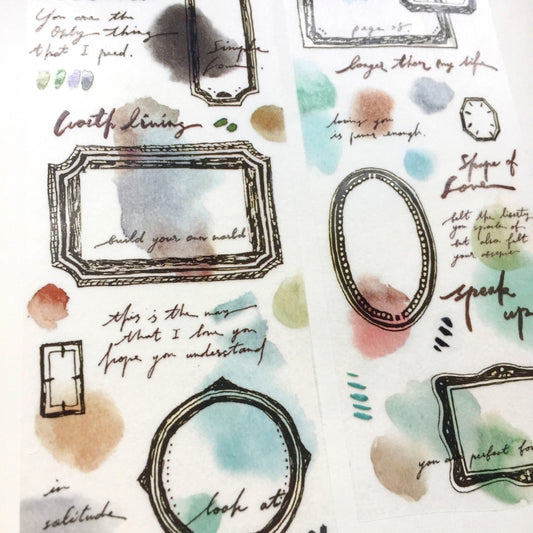 You are the
Only thing
that I need.
Simple
Love.
Worth living
build your own world
this is the way
that I love you
hope you understand
in
solitude
look at
page of
longer than my life
loving you
is never enough.
Shape of
Love
felt the
you
but also felt
your
speak
up
you are perfect for